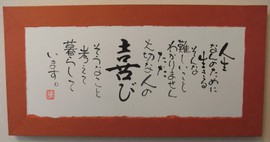 人生
なんのために
生きる
そんな
難しいこと
わかりません
ただ
大切な人の
喜び
そうなこと
考えて
暮らして
います。